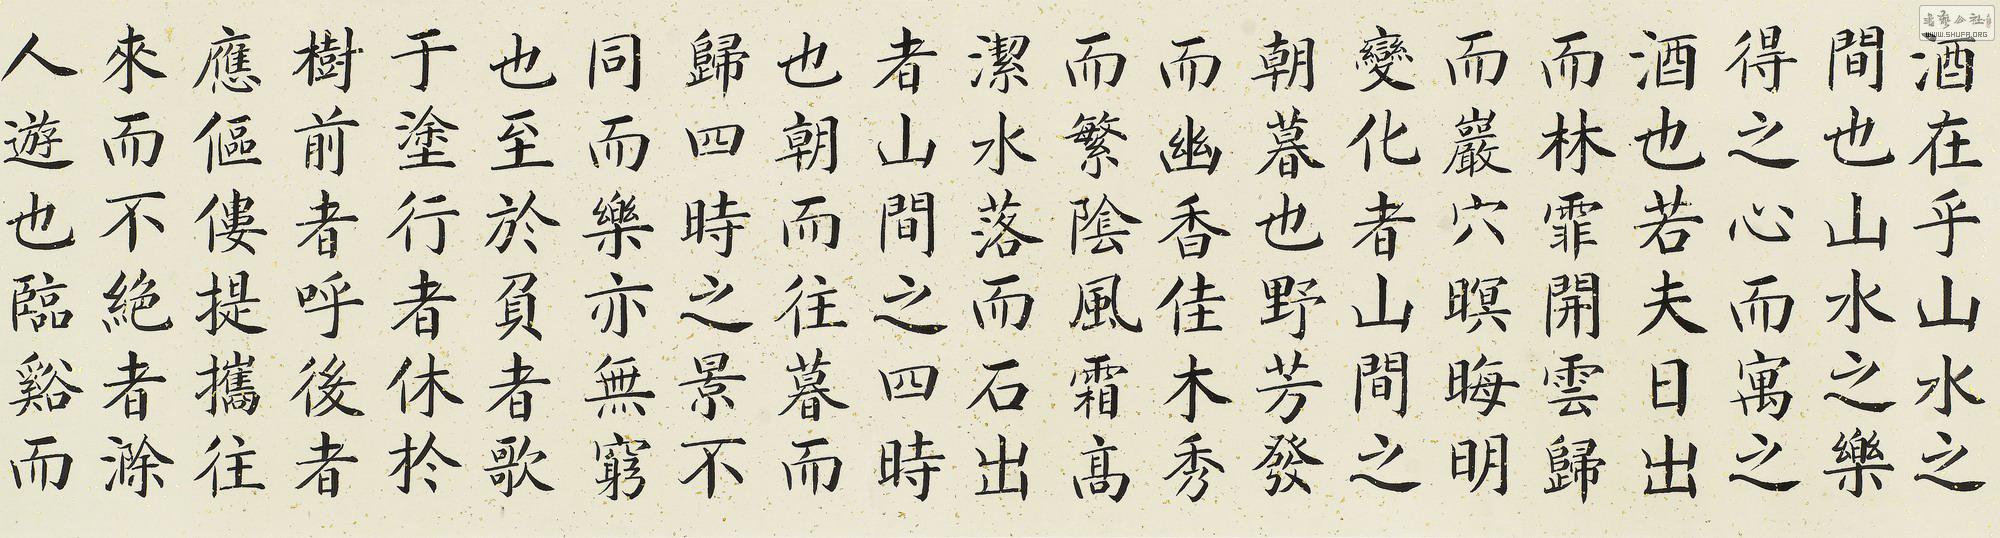 酒在乎山水之
間也山水之樂
得之心而寓之
酒也若夫日出
而林霏開雲歸
而巖穴暝晦明
變化者山間之
朝暮也野芳發
而幽香佳木秀
而繁陰風霜高
潔水落而石出
者山間之四時
也朝而往暮而
歸四時之景不
同而樂亦無窮
也至於負者歌
于塗行者休於
樹前者呼後者
應傴僂提攜往
來而不絕者滁
人遊也臨谿而
WWW.SHUFA.ORG